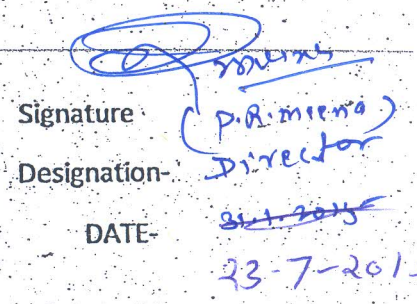 Signature (P.R. meena)
Designation- Director
DATE- 31.1.2015
23-7-201